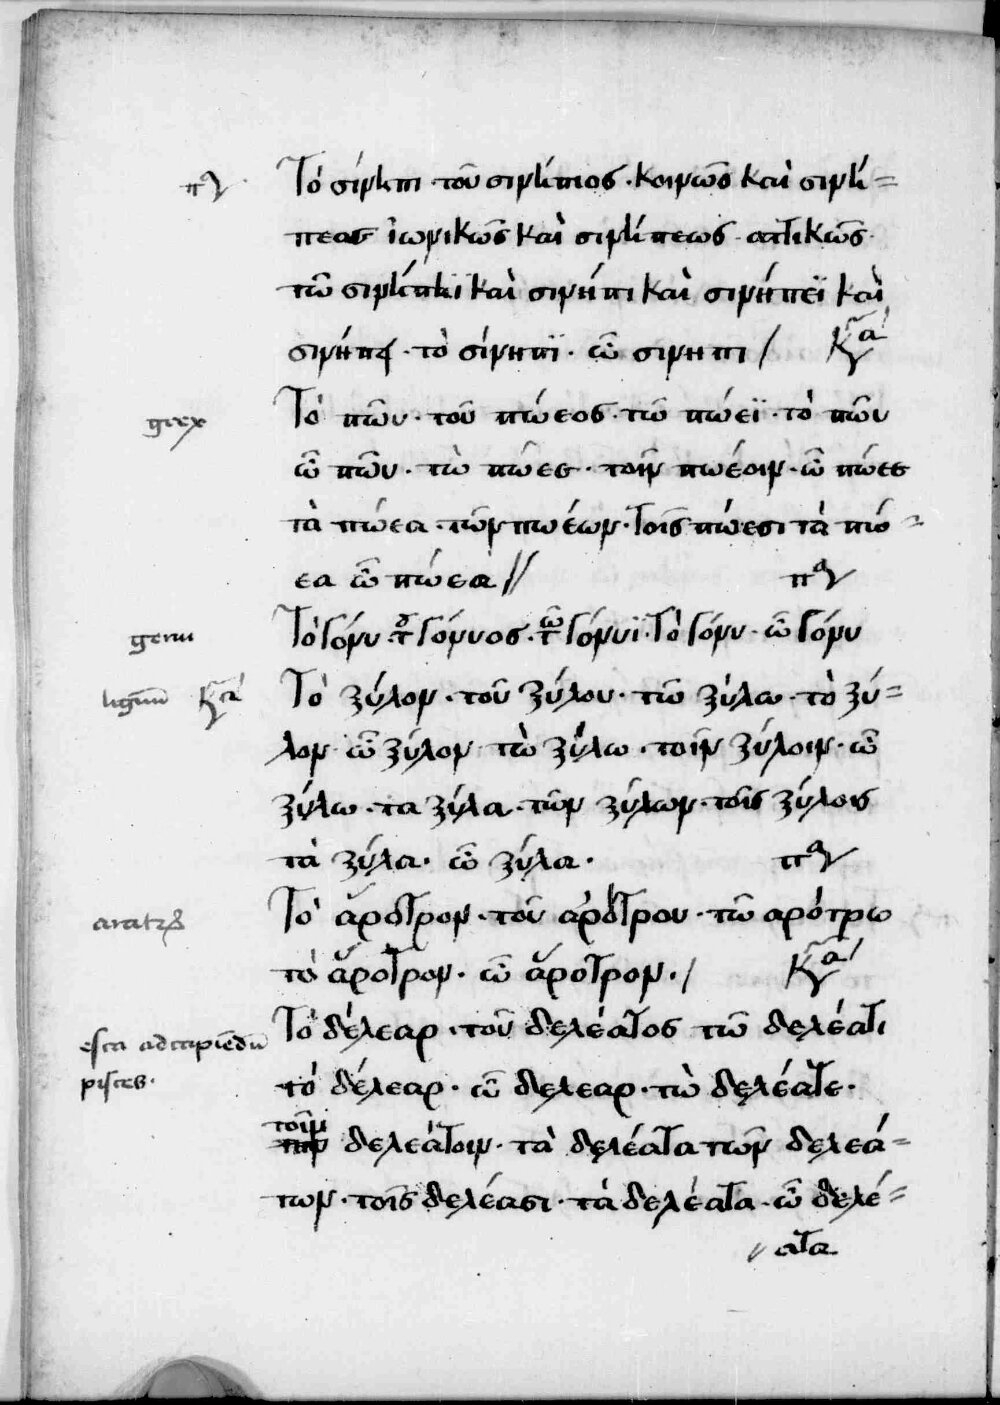 Τὸ σίνηπι · τοῦ σινήπιος · κοινῶς καὶ σινή=
πεος ἰωνικῶς καὶ σινήπεως · ἀττικῶς ·
τῶ σινήπιϊ καὶ σινήπι καὶ σινήπεϊ καὶ
σινήπει · τὸ σίνηπι · ὦ σινηπι /
grex Τὸ πῶυ · τοῦ πώεος · τῶ πώεϊ · τὸ πῶυ
ὦ πῶυ · τὼ πώεε · τοῖν πωέοιν · ὦ πώεε
τὰ πώεα · τῶν πωέων · τοῖς πώεσι τὰ πώ=
εα ὦ πώεα //
genu Τὸ γόνυ · τοῦ γόνυος · τῶ γόνυϊ · τὸ γόνυ · ὦ γόνυ
lignum Τὸ ξύλον · τοῦ ξύλου · τῶ ξύλω · τὸ ξύ=
λον ὦ ξύλον τὼ ξύλω · τοῖν ξύλοιν · ὦ
ξύλω · τα ξύλα · τῶν ξύλων · τοῖς ξύλοις
τὰ ξύλα · ὦ ξύλα ·
aratrum Τὸ ἄροτρον · τοῦ ἀρότρου · τῶ αρότρω
τὸ ἄροτρον · ὦ ἄροτρον · /
esca ad capiendum Τὸ δέλεαρ · τοῦ δελέατος τῶ δελέατι
pisces · τὸ δέλεαρ · ὦ δελεαρ · τὼ δελέατε ·
τοῖν δελεάτοιν · τὰ δελέατα τῶν δελεά=
των · τοῖς δελέασι · τὰ δελέατα · ὦ δελέ=
ατα